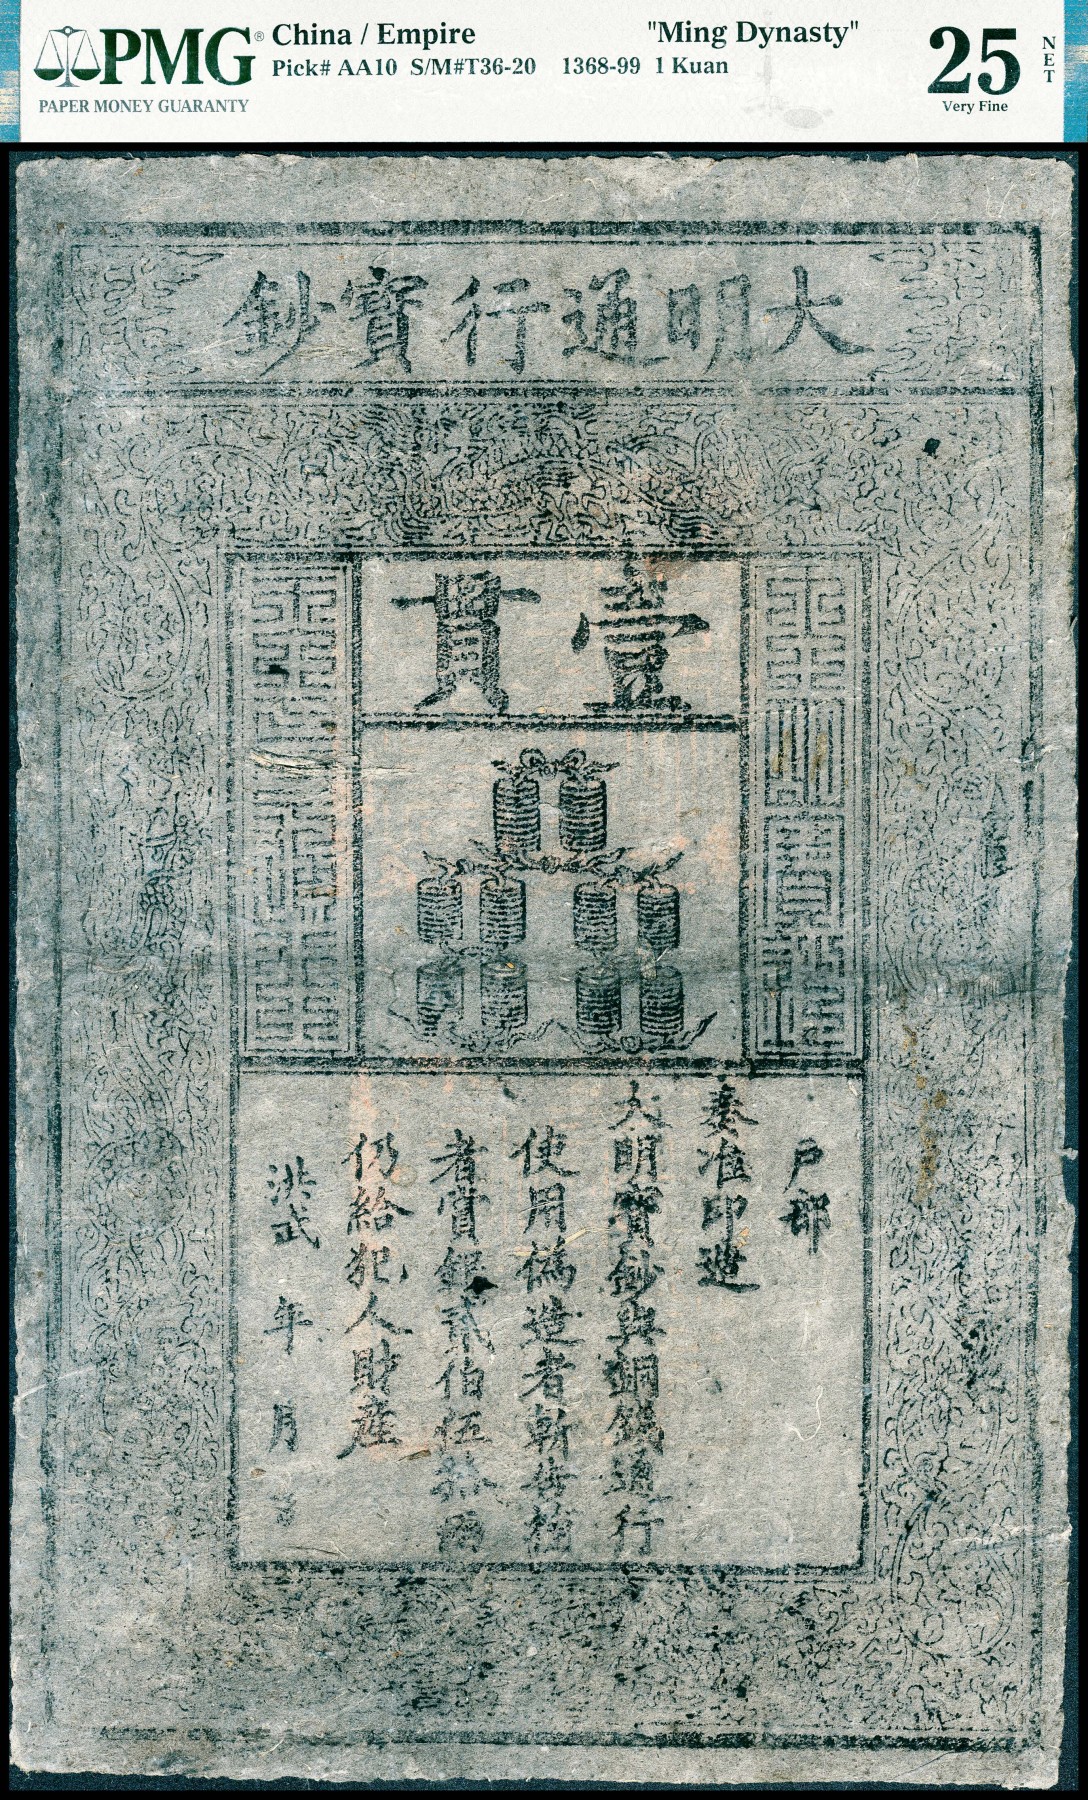 PMG®
PAPER MONEY GUARANTY
China / Empire "Ming Dynasty"
Pick# AA10 S/M#T36-20 1368-99 1 Kuan
25
Very Fine
NET
大明通行寶鈔
壹貫
大明寶鈔
天下通行
户部
奏准印造
大明寶鈔與銅錢通行
使用僞造者斬告捕
者賞銀貳伯伍拾兩
仍給犯人財産
洪武 年 月 日